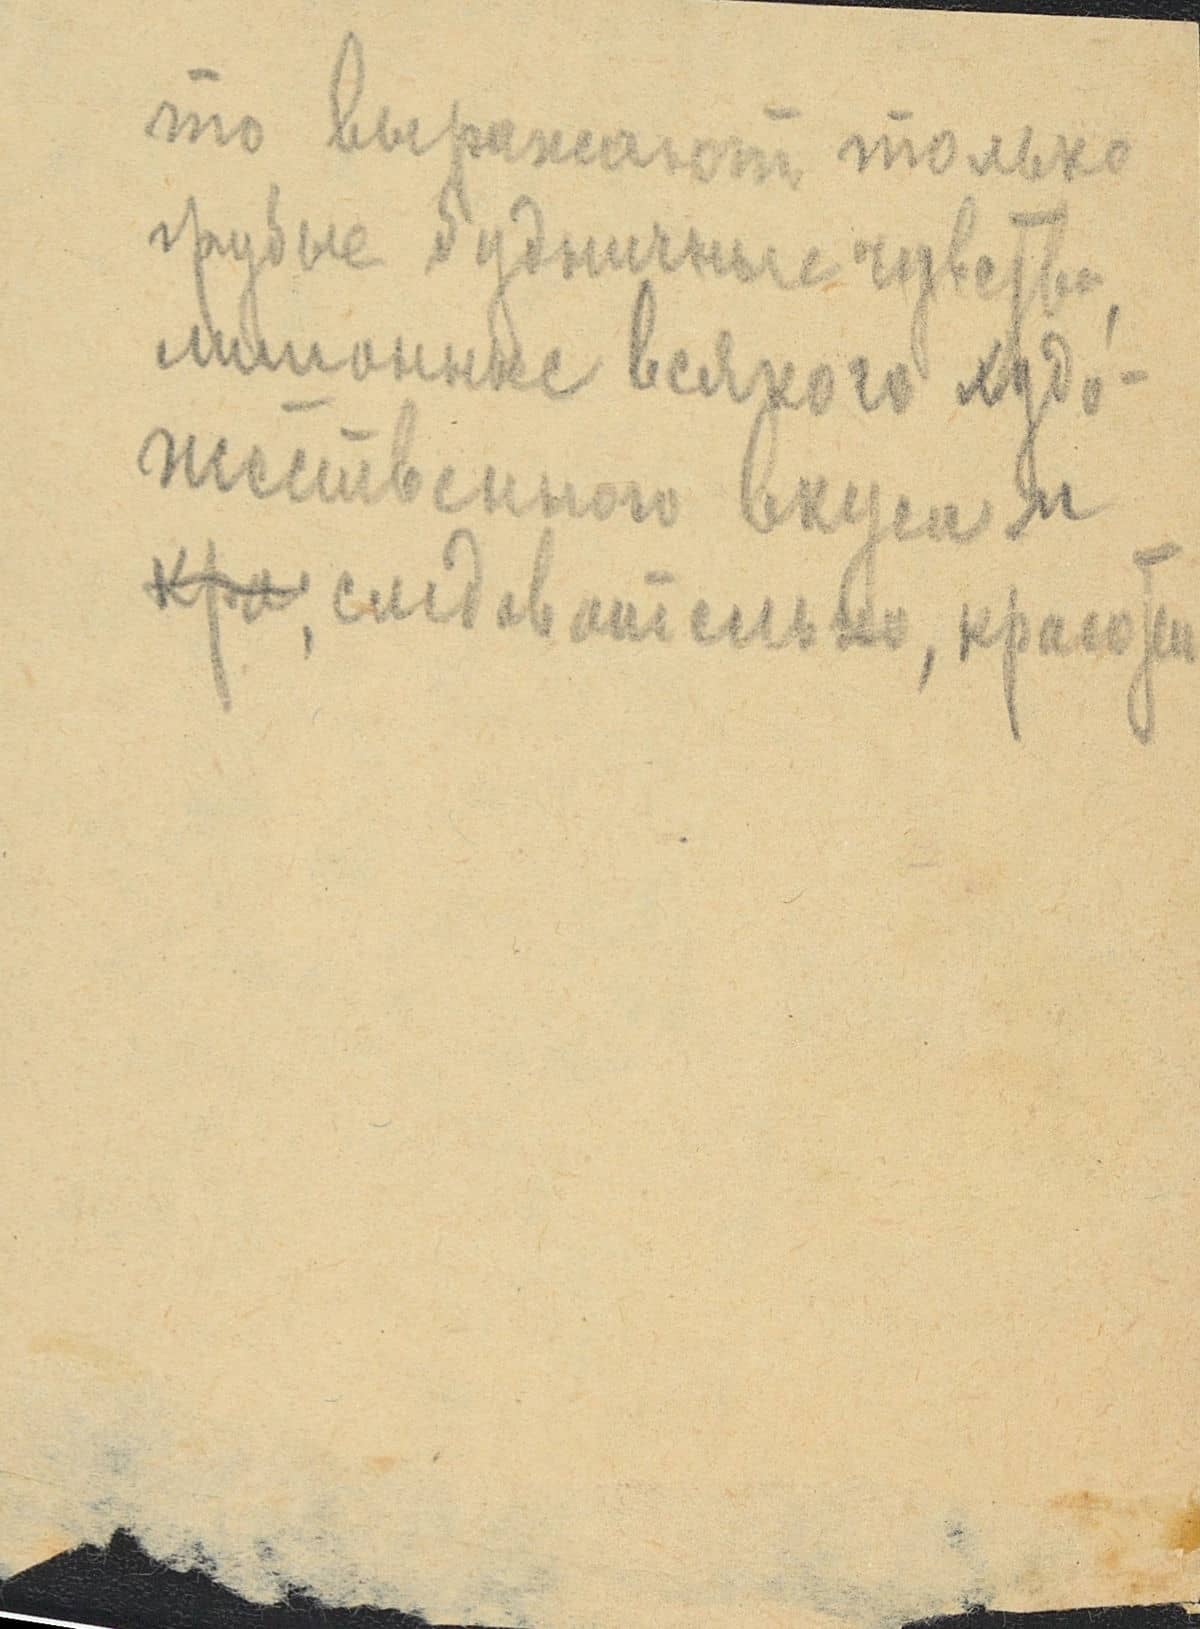 то выражают только
грубые будничные чувства,
лишонные всякого худо-
жественного вкуса и
кра, следовательно, красоты